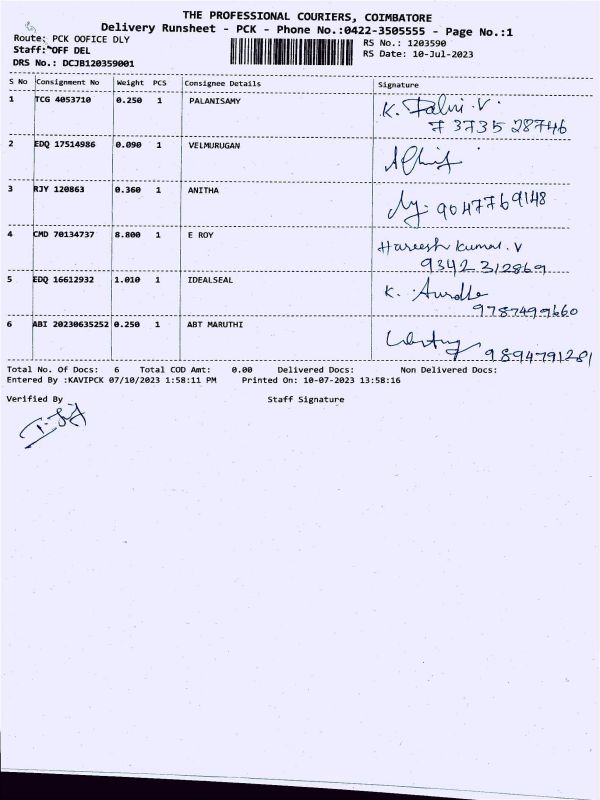 THE PROFESSIONAL COURIERS, COIMBATORE
Delivery Runsheet - PCK - Phone No.:0422-3505555 - Page No.:1
Route: PCK OOFICE DLY
RS No.: 1203590
Staff: OFF DEL
RS Date: 10-Jul-2023
DRS No.: DCJB120359001
S No Consignment No Weight PCS Consignee Details Signature
1 TCG 4053710 0.250 1 PALANISAMY K. Palni.V.
73735 28746
2 EDQ 17514986 0.090 1 VELMURUGAN
3 RJY 120863 0.360 1 ANITHA 9047769148
4 CMD 70134737 8.800 1 E ROY Hareesh kumar.V
9342312869
5 EDQ 16612932 1.010 1 IDEALSEAL K.
9787499660
6 ABI 20230635252 0.250 1 ABT MARUTHI
9894791281
Total No. Of Docs: 6 Total COD Amt: 0.00 Delivered Docs: Non Delivered Docs:
Entered By :KAVIPCK 07/10/2023 1:58:11 PM Printed On: 10-07-2023 13:58:16
Verified By Staff Signature